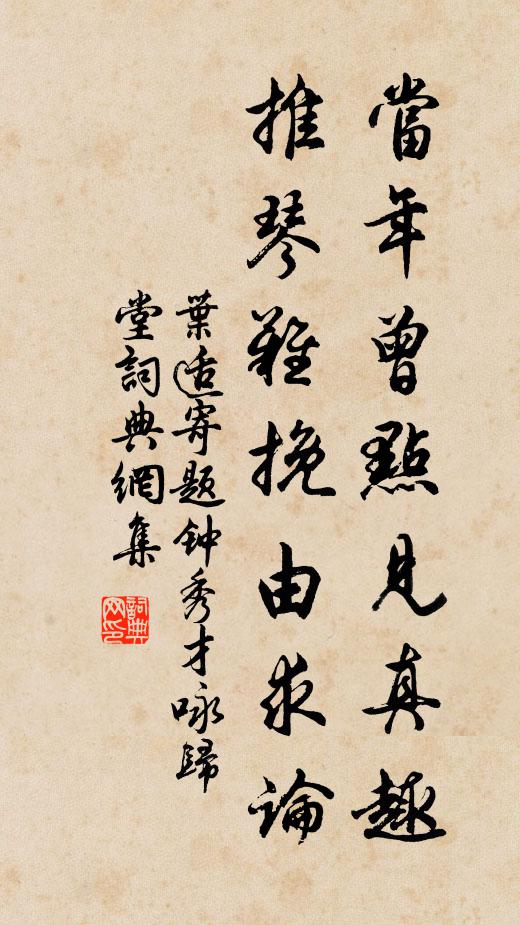 當年曾點見真趣
推琴難挽由求論
葉适寄题钟秀才咏歸
堂詞典網集
詞典網印